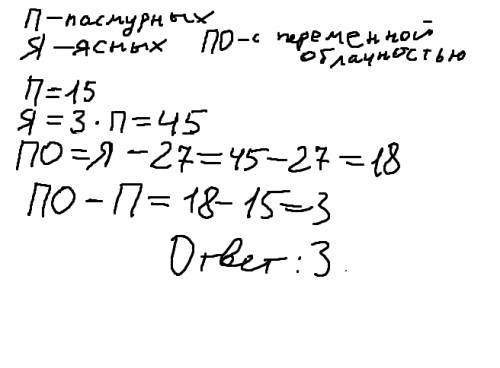 П-пасмурных
Я-ясных ПО-с переменной облачностью
П=15
Я=3·П=45
ПО=Я-27=45-27=18
ПО-П=18-15=3
Ответ: 3.